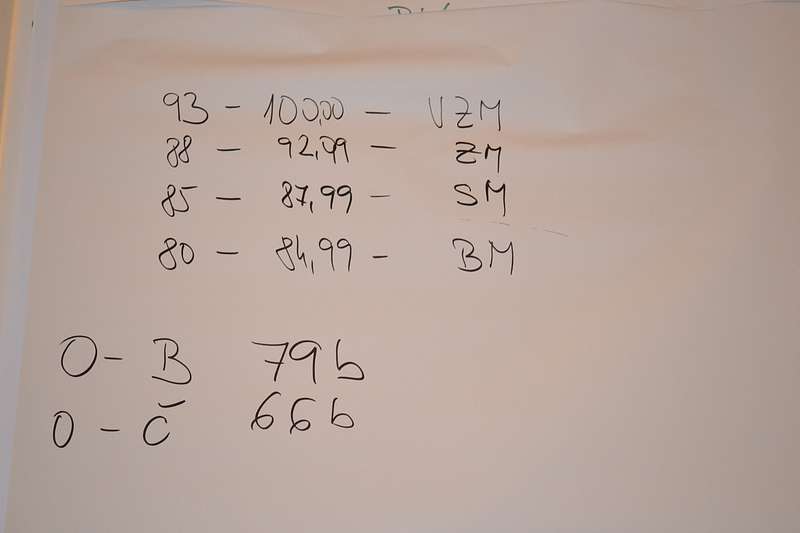 93 - 100,00 - VZM
88 - 92,99 - ZM
85 - 87,99 - SM
80 - 84,99 - BM
O - B 79b
O - Č 66b